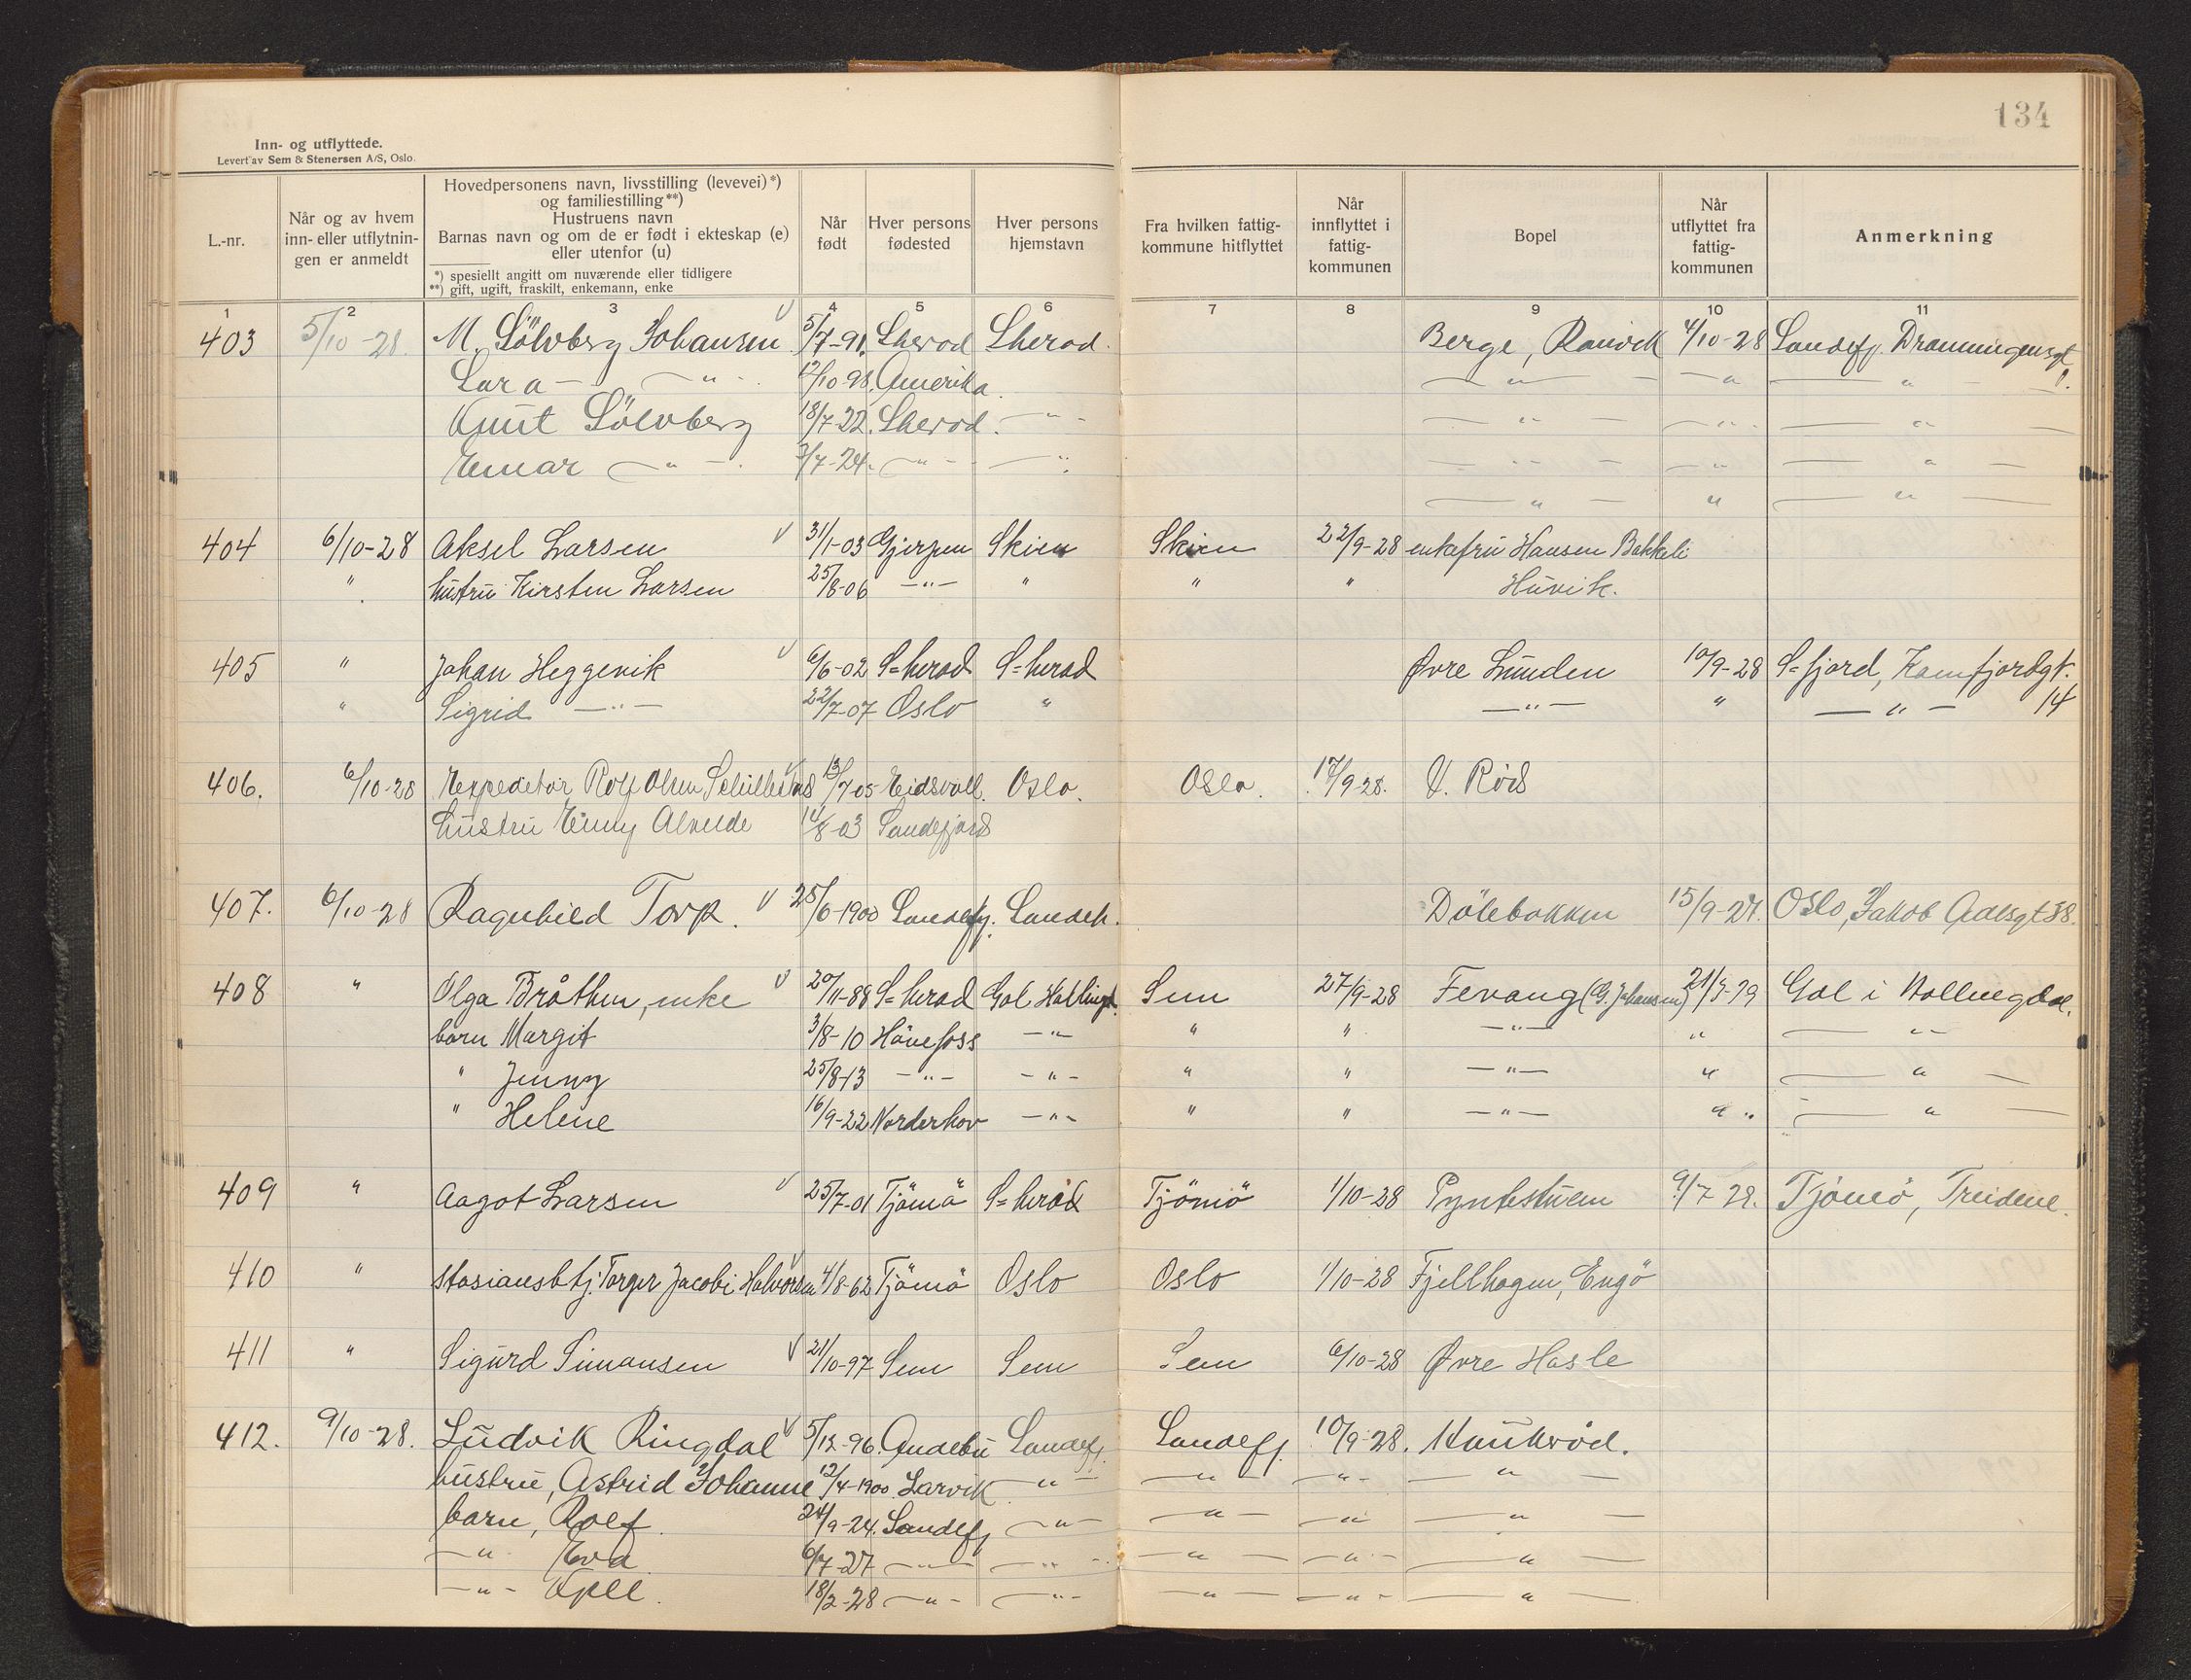 134
Inn- og utflyttede.
Levert av Sem & Stenersen A/S, Oslo.
L.-nr.
Når og av hvem inn- eller utflytnin-gen er anmeldt
Hovedpersonens navn, livsstilling (levevei)*)
og familiestilling**)
Hustruens navn
Barnas navn og om de er født i ekteskap (e)
eller utenfor (u)
*) spesiellt angitt om nuværende eller tidligere
**) gift, ugift, fraskilt, enkemann, enke
Når født
Hver persons fødested
Hver persons hjemstavn
Fra hvilken fattig-kommune hitflyttet
Når innflyttet i fattig-kommunen
Bopel
Når utflyttet fra fattig-kommunen
Anmerkning
1 2 3 4 5 6 7 8 9 10 11
403 5/10-28. M. Sölvberg Johansen V 5/7-91. Sherod Sherod. Berge, Ranvik 4/10-28 Sandefj. Dronningensgt
Lara — " — 12/10-98. Amerika. — " — — " — " —
Knut Sölvberg 18/7-22. Sherod. — " — — " — — " — — " —
Einar — " —. 3/7-24. — " — — " — — " — — " — — " —
— " — " — " —
404 6/10-28 Aksel Larsen V 31/1-03 Gjerpen Skien Skien 22/9-28 enkefru Hansen Bakkeli
" hustru Kirsten Larsen 25/8-06 — " — " " " Huvik.
405 " Johan Heggenik V 6/6-02 S=herad S=herad Øvre Lunden 10/9-28 S=fjord, Kamfjordgt.
" Sigrid — " — 22/7-07 Oslo " — " — " — " — 14
406. 6/10-28 Expeditør Rolf Olsen V 13/7 05 Eidsvoll. Oslo. Oslo. 17/9-28. V. Röd
hustru Einy Alvilde 14/8-03 Sandefjord
407. 6/10-28 Ragnhild Torp. V 25/6-1900 Sandefj. Sandeh. Dölebakken 15/9-27. Oslo, Jakob Aalsgt 38.
408 " Olga Bråthen, enke V 20/11-88 S=herad Gol Hallingd. Sem 27/9-28 Fevang (G. Johansen) 21/3-29 Gol i Hallingdal.
barn Margit 3/8-10 Hönefoss — " — " " — " — " — " —
" Jenny 25/8-13 — " — — " — " " — " — " — " —
" Helene 16/9-22 Norderhov — " — " " — " — " — " —
409 " Aagot Larsen V 25/7-01 Tjömö S=herad Tjömö 1/10-28 Pyntestuen 9/7 29. Tjömö, Treidene.
410 " stasjonsbtj. Torger Jacobi Halvorsen V 4/8-62 Tjömö Oslo Oslo 1/10-28 Fjellhagen, Engö
411 " Sigurd Simonsen V 21/10-97 Sem Sem Sem 6/10-28 Øvre Hasle
412. 9/10-28. Ludvik Ringdal V 5/12-96. Andebu Sandefj. Sandefj. 10/9-28. Haukröd.
hustru, Astrid Johanne 12/4-1900. Larvik — " — — " — — " — — " —
barn, Rolf. 24/9-24. Sandefj — " — — " — — " — — " —
— " — Eva 6/7-27 — " — — " — — " — — " — — " —
— " — Kjell. 18/2-28 — " — — " — — " — — " — — " —